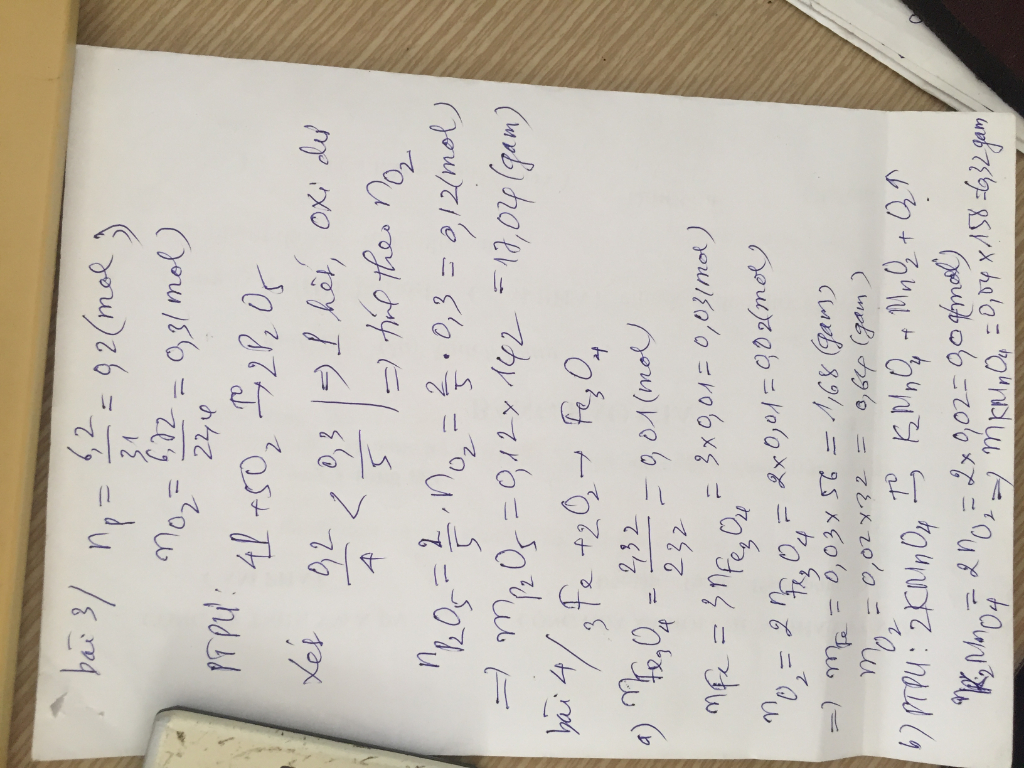 bài 3/ nP = 6,2/31 = 0,2 (mol)
nO2 = 6,72/22,4 = 0,3 (mol)
PTPƯ: 4P + 5O2 →t° 2P2O5
Xét 0,2/4 < 0,3/5 | => P hết, oxi dư
=> tính theo nO2
nP2O5 = 2/5 . nO2 = 2/5 . 0,3 = 0,12 (mol)
=> mP2O5 = 0,12 x 142 = 17,04 (gam)
bài 4/ 3Fe + 2O2 → Fe3O4
a) nFe3O4 = 2,32/232 = 0,01 (mol)
nFe = 3nFe3O4 = 3 x 0,01 = 0,03 (mol)
nO2 = 2nFe3O4 = 2 x 0,01 = 0,02 (mol)
=> mFe = 0,03 x 56 = 1,68 (gam)
mO2 = 0,02 x 32 = 0,64 (gam)
b) PTPƯ: 2KMnO4 →t° K2MnO4 + MnO2 + O2↑
MnO4 = 2nO2 = 2 x 0,02 = 0,04 (mol)
=> mKMnO4 = 0,04 x 158 = 6,32 gam